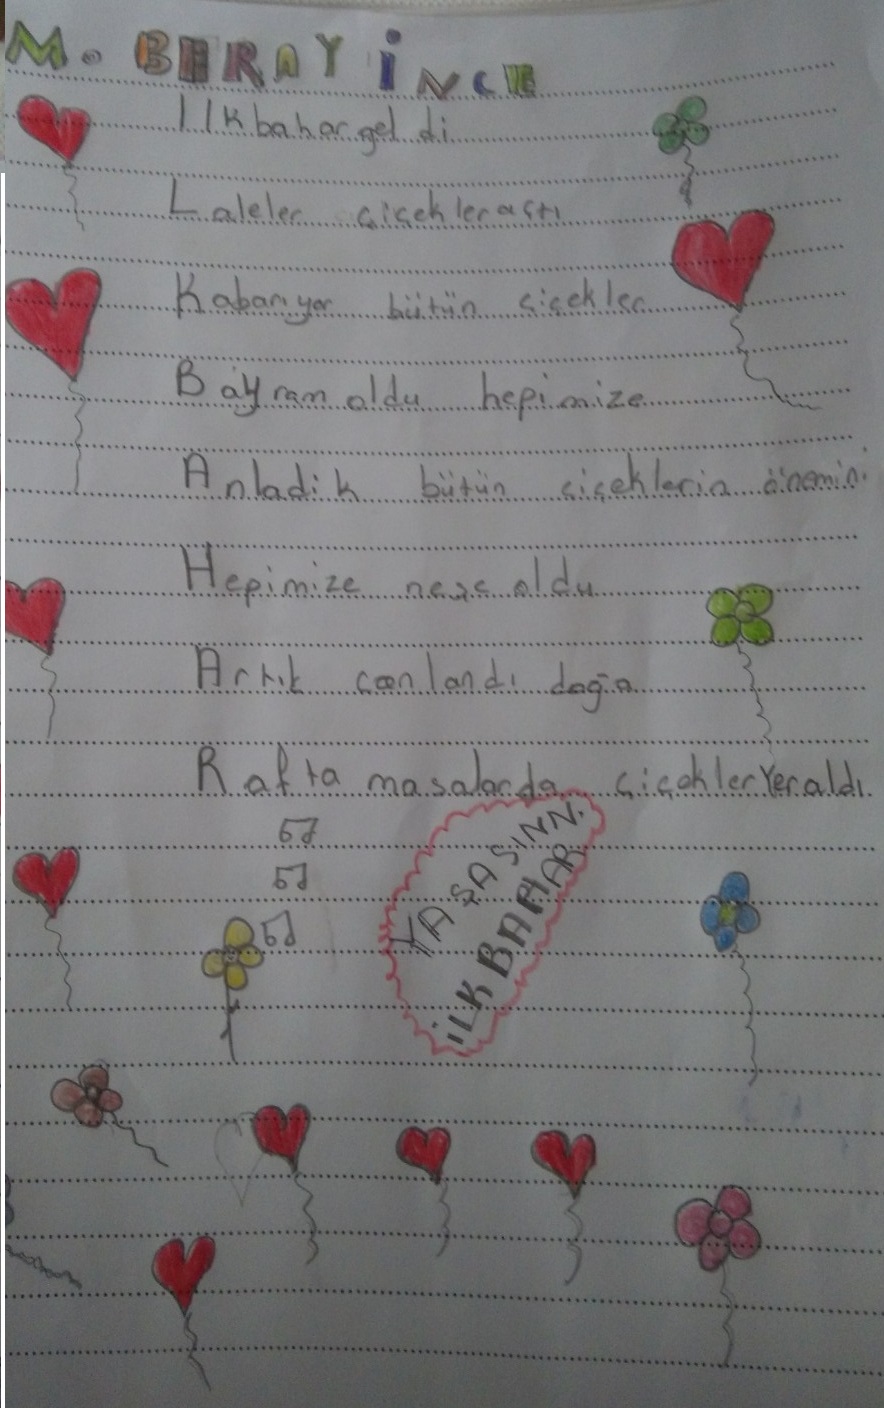 M. BERAY İNCE
Ilkbahar geldi
Laleler çiçekler açtı
Kabarıyor bütün çiçekler
Bayram oldu hepimize
Anladik bütün çiçeklerin önemini
Hepimize neşe oldu
Artık canlandı doğa
Rafta masalarda çiçekler Yer aldı.
YAŞASINN
İLKBAHAR